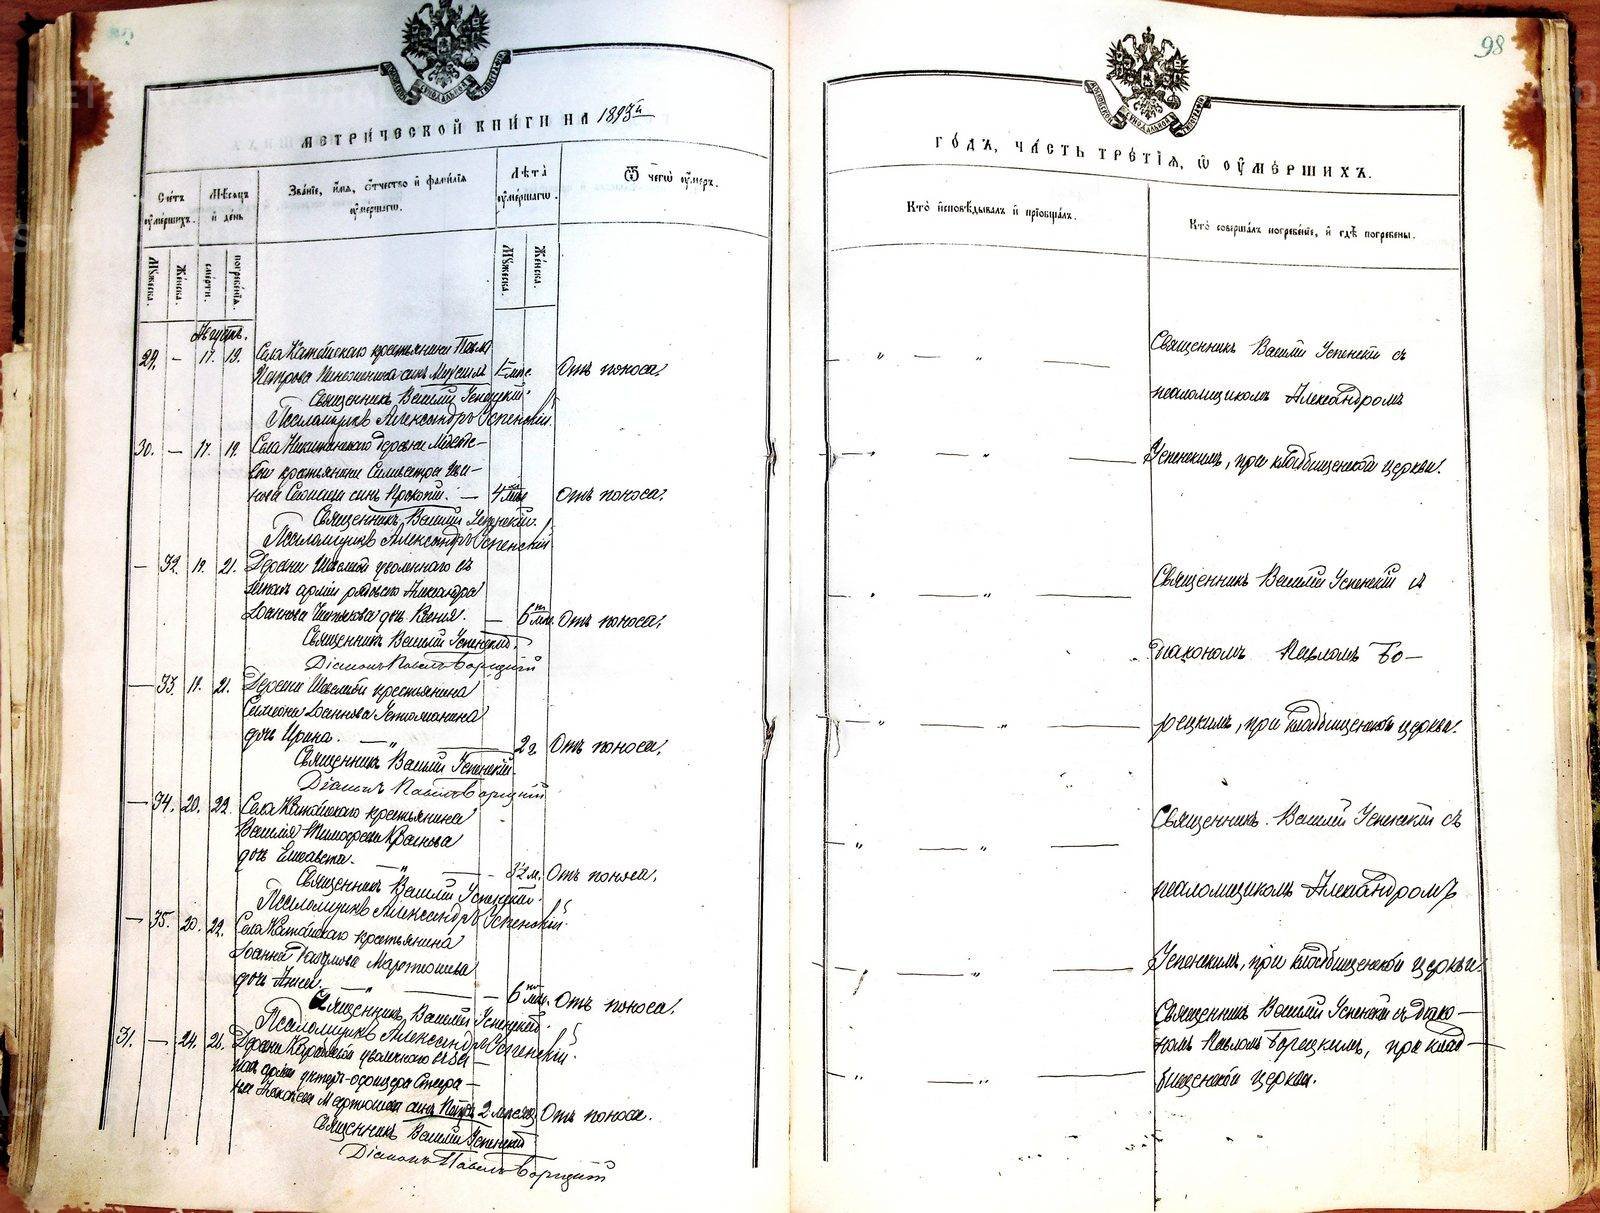 МЕТРИЧЕСКОЙ КНИГИ НА 1893й
Счетъ умершихъ.
Мѣсяцъ и день
Званіе, имя, отчество и фамилія умершаго.
Лѣта умершаго.
Ѿ чегѡ умеръ.
Мужеска.
Женска.
смерти.
погребенія.
Мужеска.
Женска.
Августъ.
29. — 17. 19. Села Катайскаго крестьянина Павла
Петрова сынъ Отъ поноса.
Священникъ Василій Успенскій.
Псаломщикъ Александръ Успенскій.
30. — 17. 19. Села деревни
крестьянина
сынъ Прокопій. — 4 Отъ поноса.
Священникъ Василій Успенскій.
Псаломщикъ Александръ Успенскій
— 32. 19. 21. Деревни уволеннаго въ
запасъ арміи рядового Александра
Іоаннова дочь Ксенія. — 6 мѣс. Отъ поноса.
Священникъ Василій Успенскій.
Діаконъ Павелъ Борецкій
— 33. 19. 21. Деревни крестьянина
Симеона Іоаннова Устюжанина
дочь Ирина. — „ — 2 г. Отъ поноса.
Священникъ Василій Успенскій.
Діаконъ Павелъ Борецкій
— 34. 20. 22. Села Катайскаго крестьянина
Василія Тимофеева
дочь Елисавета. — „ — Отъ поноса.
Священникъ Василій Успенскій.
Псаломщикъ Александръ Успенскій.
— 35. 20. 22. Села Катайскаго крестьянина
Іоанна
дочь Анна. — „ — 6 мѣс. Отъ поноса.
Священникъ Василій Успенскій.
Псаломщикъ Александръ Успенскій.
31. — 24. 26. Деревни уволеннаго въ за-
пасъ арміи унтеръ-офицера
сынъ 2 Отъ поноса.
Священникъ Василій Успенскій
Діаконъ Павелъ Борецкій
98
ГОДЪ, ЧАСТЬ ТРЕТІЯ, Ѡ УМЕРШИХЪ.
Кто исповѣдывалъ и пріобщалъ.
Кто совершалъ погребеніе, и гдѣ погребены.
Священникъ Василій Успенскій съ
псаломщикомъ Александромъ
Успенскимъ, при кладбищенской церкви.
Священникъ Василій Успенскій съ
діакономъ Павломъ Бо-
рецкимъ, при кладбищенской церкви.
Священникъ Василій Успенскій съ
псаломщикомъ Александромъ
Успенскимъ, при кладбищенской церкви.
Священникъ Василій Успенскій съ діако-
номъ Павломъ Борецкимъ, при клад-
бищенской церкви.